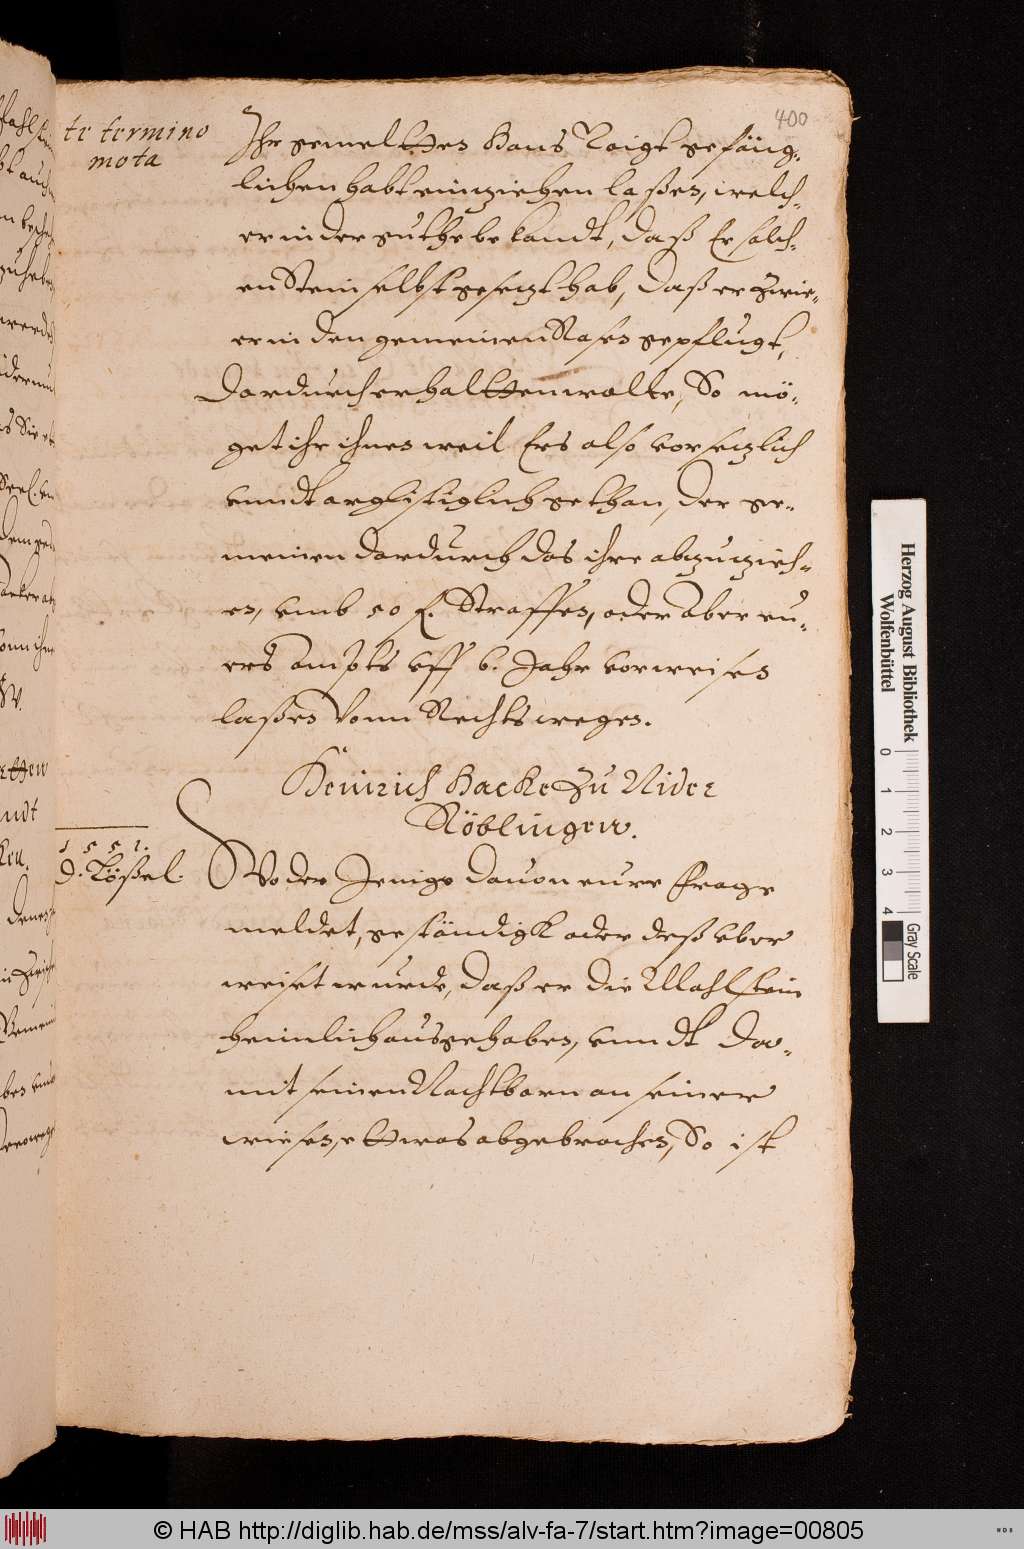 400
te termino
mota
Ihr gemeltten Hans Voigt gefäng-
lichen habt einziehen laßen, welch-
er in der guthe bekandt, daß Er solch-
en Stein selbst gesezt hab, daß er zwie-
er in den gemeinen Rasen gepflugt,
dardurch erhaltten wolte, So mö-
get ihr ihnen weil Ers also vorsezlich
vnndt arglistiglich gethan, der ge-
meinen dardurch das ihre abzuzieh-
en, vmb 50 f. Straffen, oder aber eu-
ers ampts vff 6. Jahr vorweisen
laßen Vonn Rechts wegen.
Heinrich Hacke Zu Nider
Röblingenn.
1551.
D. Lößel.
Wo der Jenige dauon eure frage
meldet, geständigk oder deß vber
weiset wurde, daß er die Mahlstein
heimlich ausgehaben, vnndt dar-
mit seinen Nachtbarn an seiner
wiesen, ettwas abgebrochen, So ist
Herzog August Bibliothek
Wolfenbüttel
0 1 2 3 4
Gray Scale
© HAB http://diglib.hab.de/mss/alv-fa-7/start.htm?image=00805